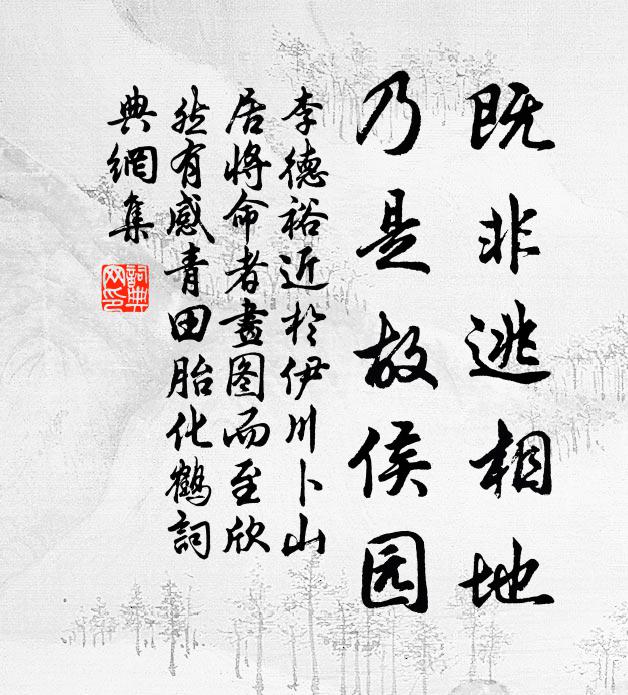 既非逃相地
乃是故侯园
李德裕近於伊川卜山
居将命者畫图而至欣
然有感青田胎化鶴詞
典網集
詞典
网印